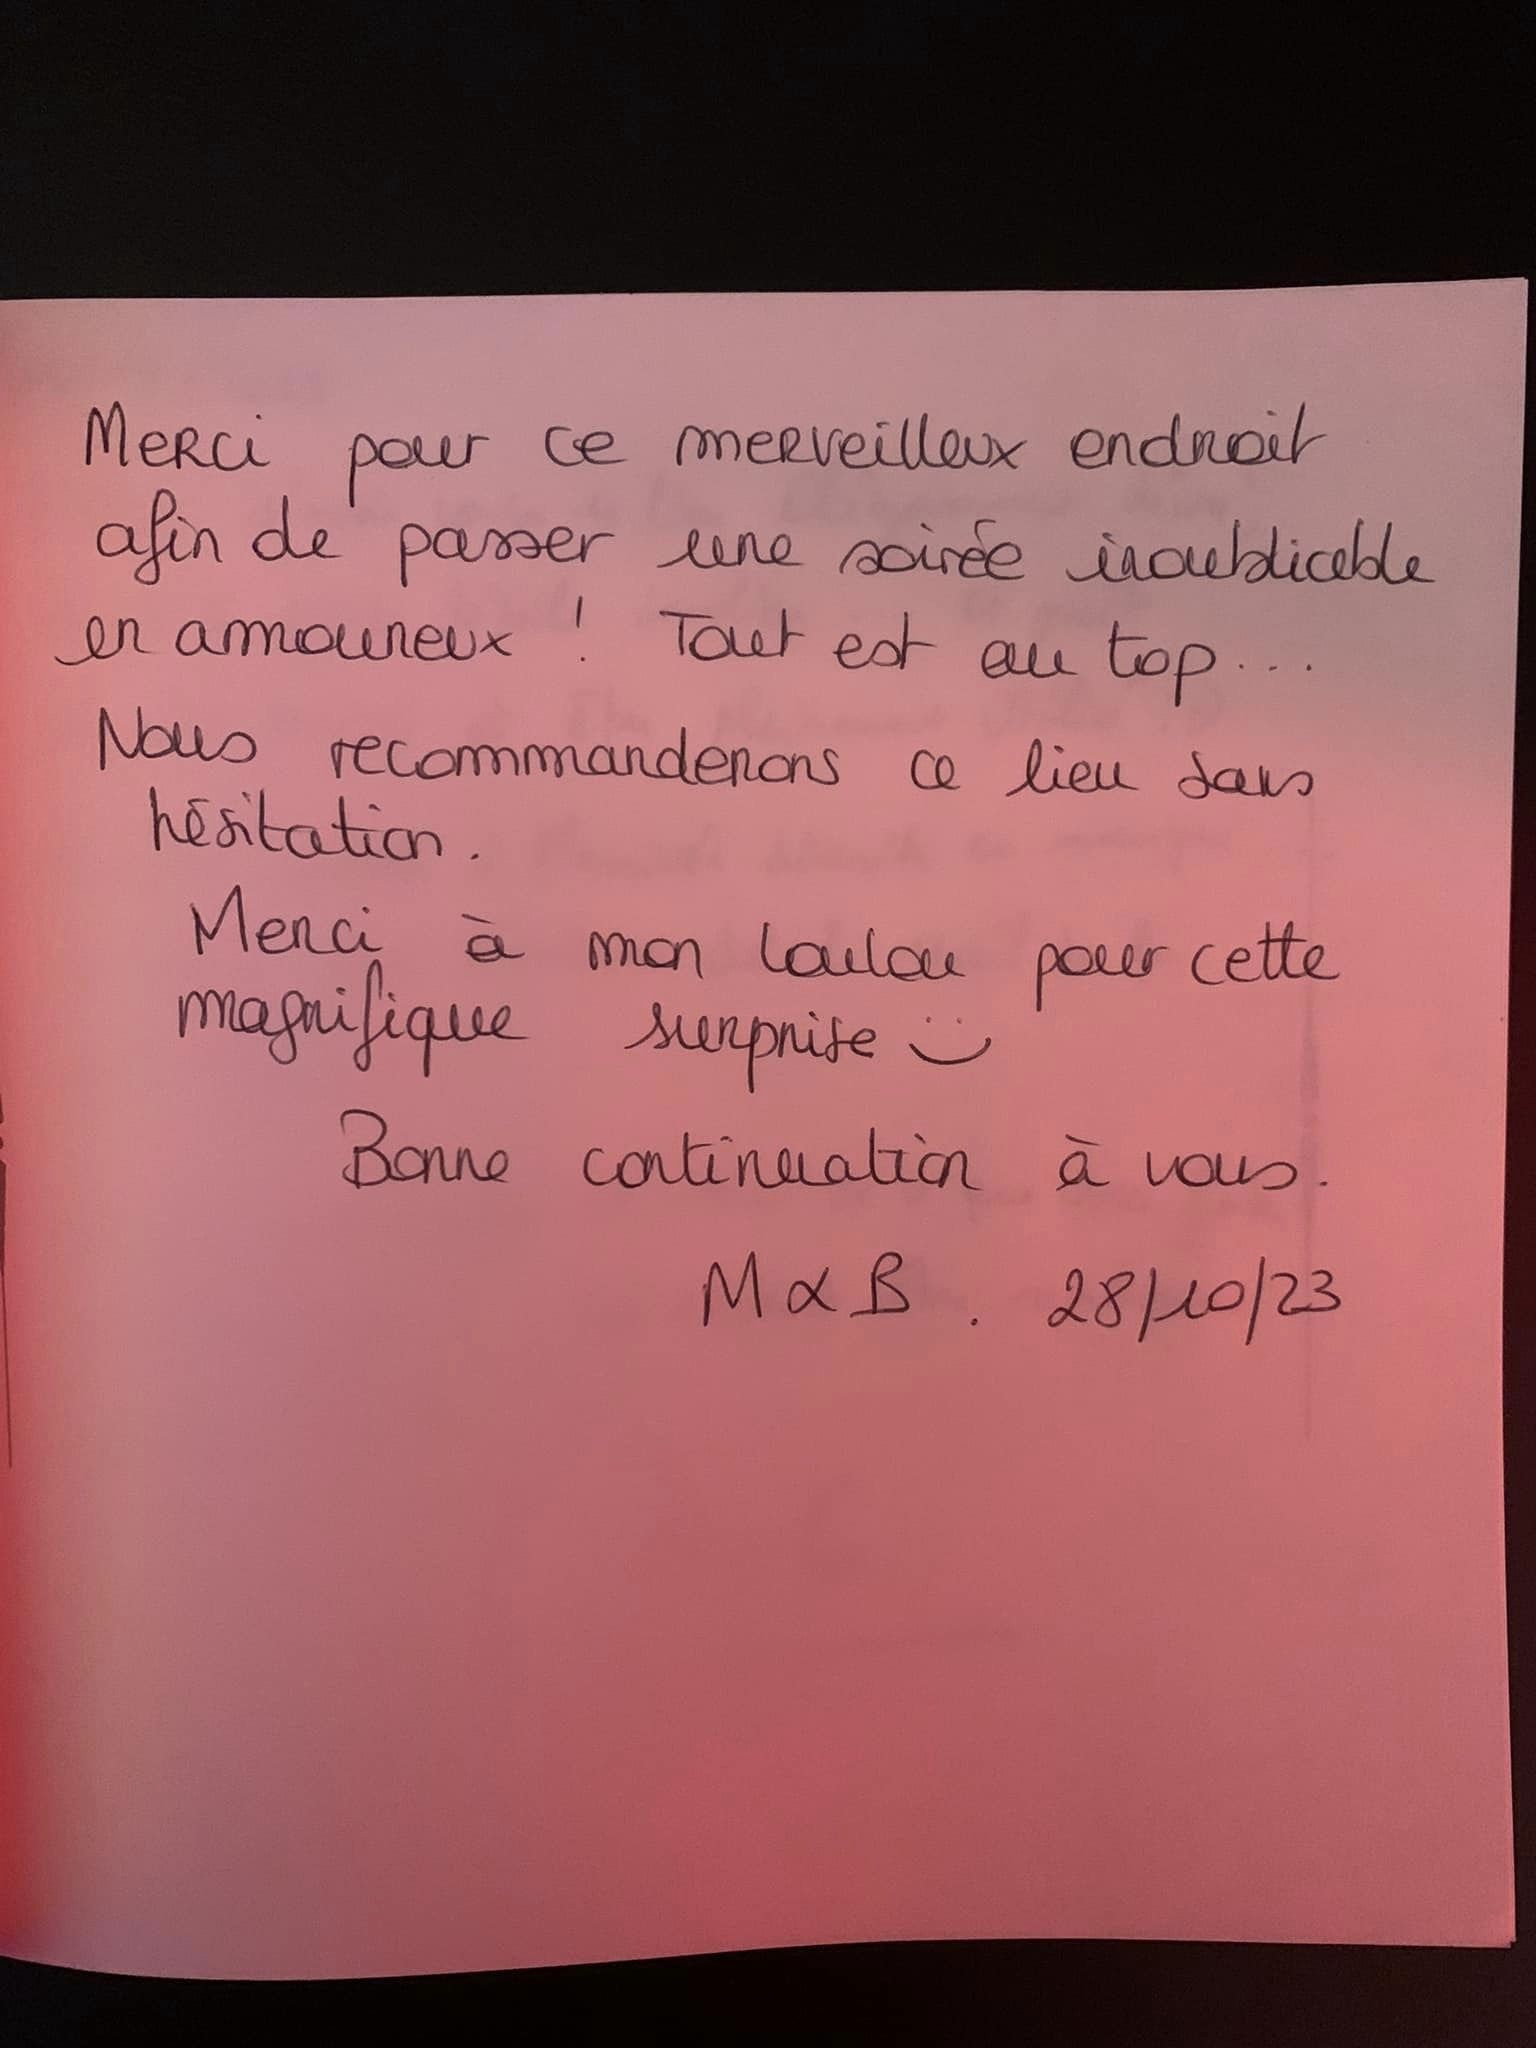 Merci pour ce merveilleux endroit
afin de passer une soirée inoubliable
en amoureux ! Tout est au top...
Nous recommanderons ce lieu sans
hésitation.
Merci à mon loulou pour cette
magnifique surprise :)
Bonne continuation à vous.
M & B. 28/10/23